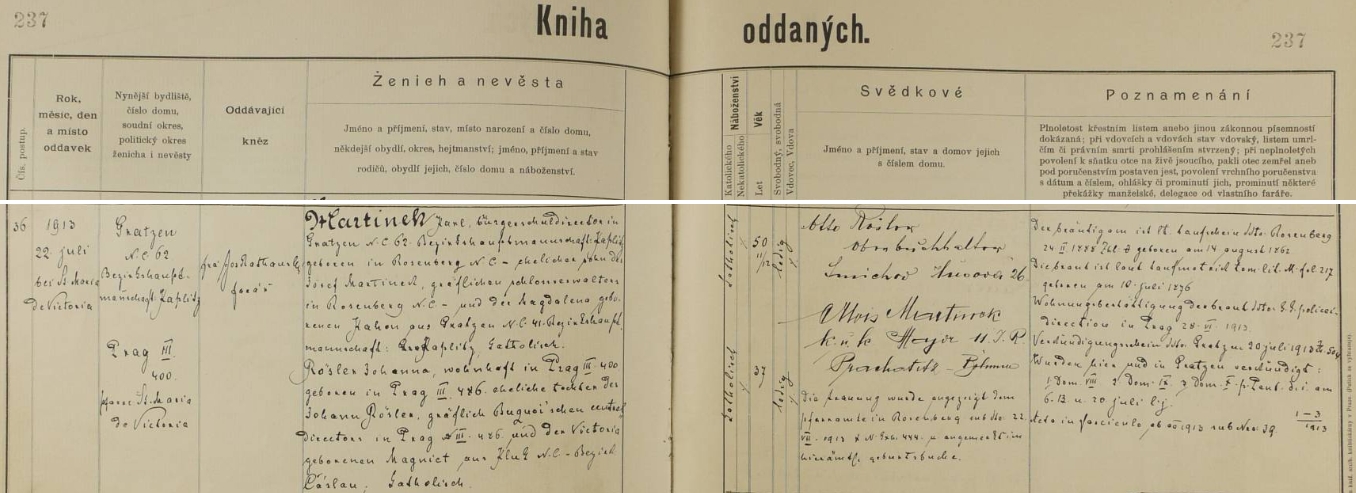 237
Kniha oddaných.
237
Čís. postup.
Rok,
měsíc, den
a místo
oddavek
Nynější bydliště,
číslo domu,
soudní okres,
politický okres
ženicha i nevěsty
Oddávající
kněz
Ženich a nevěsta
Jméno a příjmení, stav, místo narození a číslo domu,
někdejší obydlí, okres, hejtmanství; jméno, příjmení a stav
rodičů, obydlí jejich, číslo domu a náboženství.
Náboženství
Katolického
Nekatolického
Věk
Let
Svobodný, svobodná
Vdovec, Vdova
Svědkové
Jméno a příjmení, stav a domov jejich
s číslem domu.
Poznamenání
Plnoletost křestním listem anebo jinou zákonnou písemností
dokázaná; při vdovcích a vdovách stav vdovský, listem úmrt-
ním či právním smrti prohlášením stvrzený; při neplnoletých
povolení k sňatku otce na živě jsoucího, pakli otec zemřel aneb
pod poručenstvím postaven jest, povolení vrchního poručenstva
s datum a číslem, ohlášky či prominutí jich, prominutí některé
překážky manželské, delegace od vlastního faráře.
36
1913
22. juli
bei St. Maria
de Victoria
Gratzen
N.C. 62
Bezirkshaupt-
mannschaft: Kaplitz
Prag III
400.
Pfarre St. Maria
de Victoria
farář
Martinek Karl, Bürgerschuldirector in
Gratzen N.C. 62. Bezirkshauptmannschaft: Kaplitz
geboren in Rosenberg N.C - ehelicher sohn des
Josef Martinek, gräflichen schlossverwalters
in Rosenberg N.C - und der Magdalena gebo-
renen Kahon aus Gratzen N.C. 41. Bezirkshaupt
mannschaft: Kaplitz, Catholisch.
Rösler Johanna, wohnhaft in Prag III - 400
geboren in Prag III. 486. eheliche tochter des
Johann Rösler, gräflich Buquoi'schen central
directors in Prag III - 486. und der Victoria
geborenen Magniet aus N.C - Bezirk
Čáslau. Catholisch.
Catholisch
50
11/12
ledig
Catholisch
37
ledig
Otto Rösler
Oberbuchhalter
Smichov Husova 26.
Alois Martinek
k. u. k. Major 11. I. R.
Prachatitz - Böhmen
Die trauung wurde angezeigt dem
pfarramte in Rosenberg sub dto. 22.
VII. 1913 N. Exh. 444. u. angemerkt im
hierämtl. geburtsbuche.
Der bräutigam ist lt. taufschein dto. Rosenberg
geboren am 14 august 1862
Die braut ist laut taufmatrik tom. lit. M. fol 217
geboren am 10. juli 1876
Wohnungsbestättigung der braut dto. k.k. polizei-
direction in Prag 28. VI. 1913.
Verkündigungsschein dto. Gratzen 20 juli 1913
Wurden hier und in Gratzen verkündigt:
1 Dom. VIII 2 Dom. IX, 3 Dom. X. p. Pent. d. i. am
6. 13 u. 20 juli l. j.
Acta in fasciculo 1913 sub Nro 39.
1-3
1913